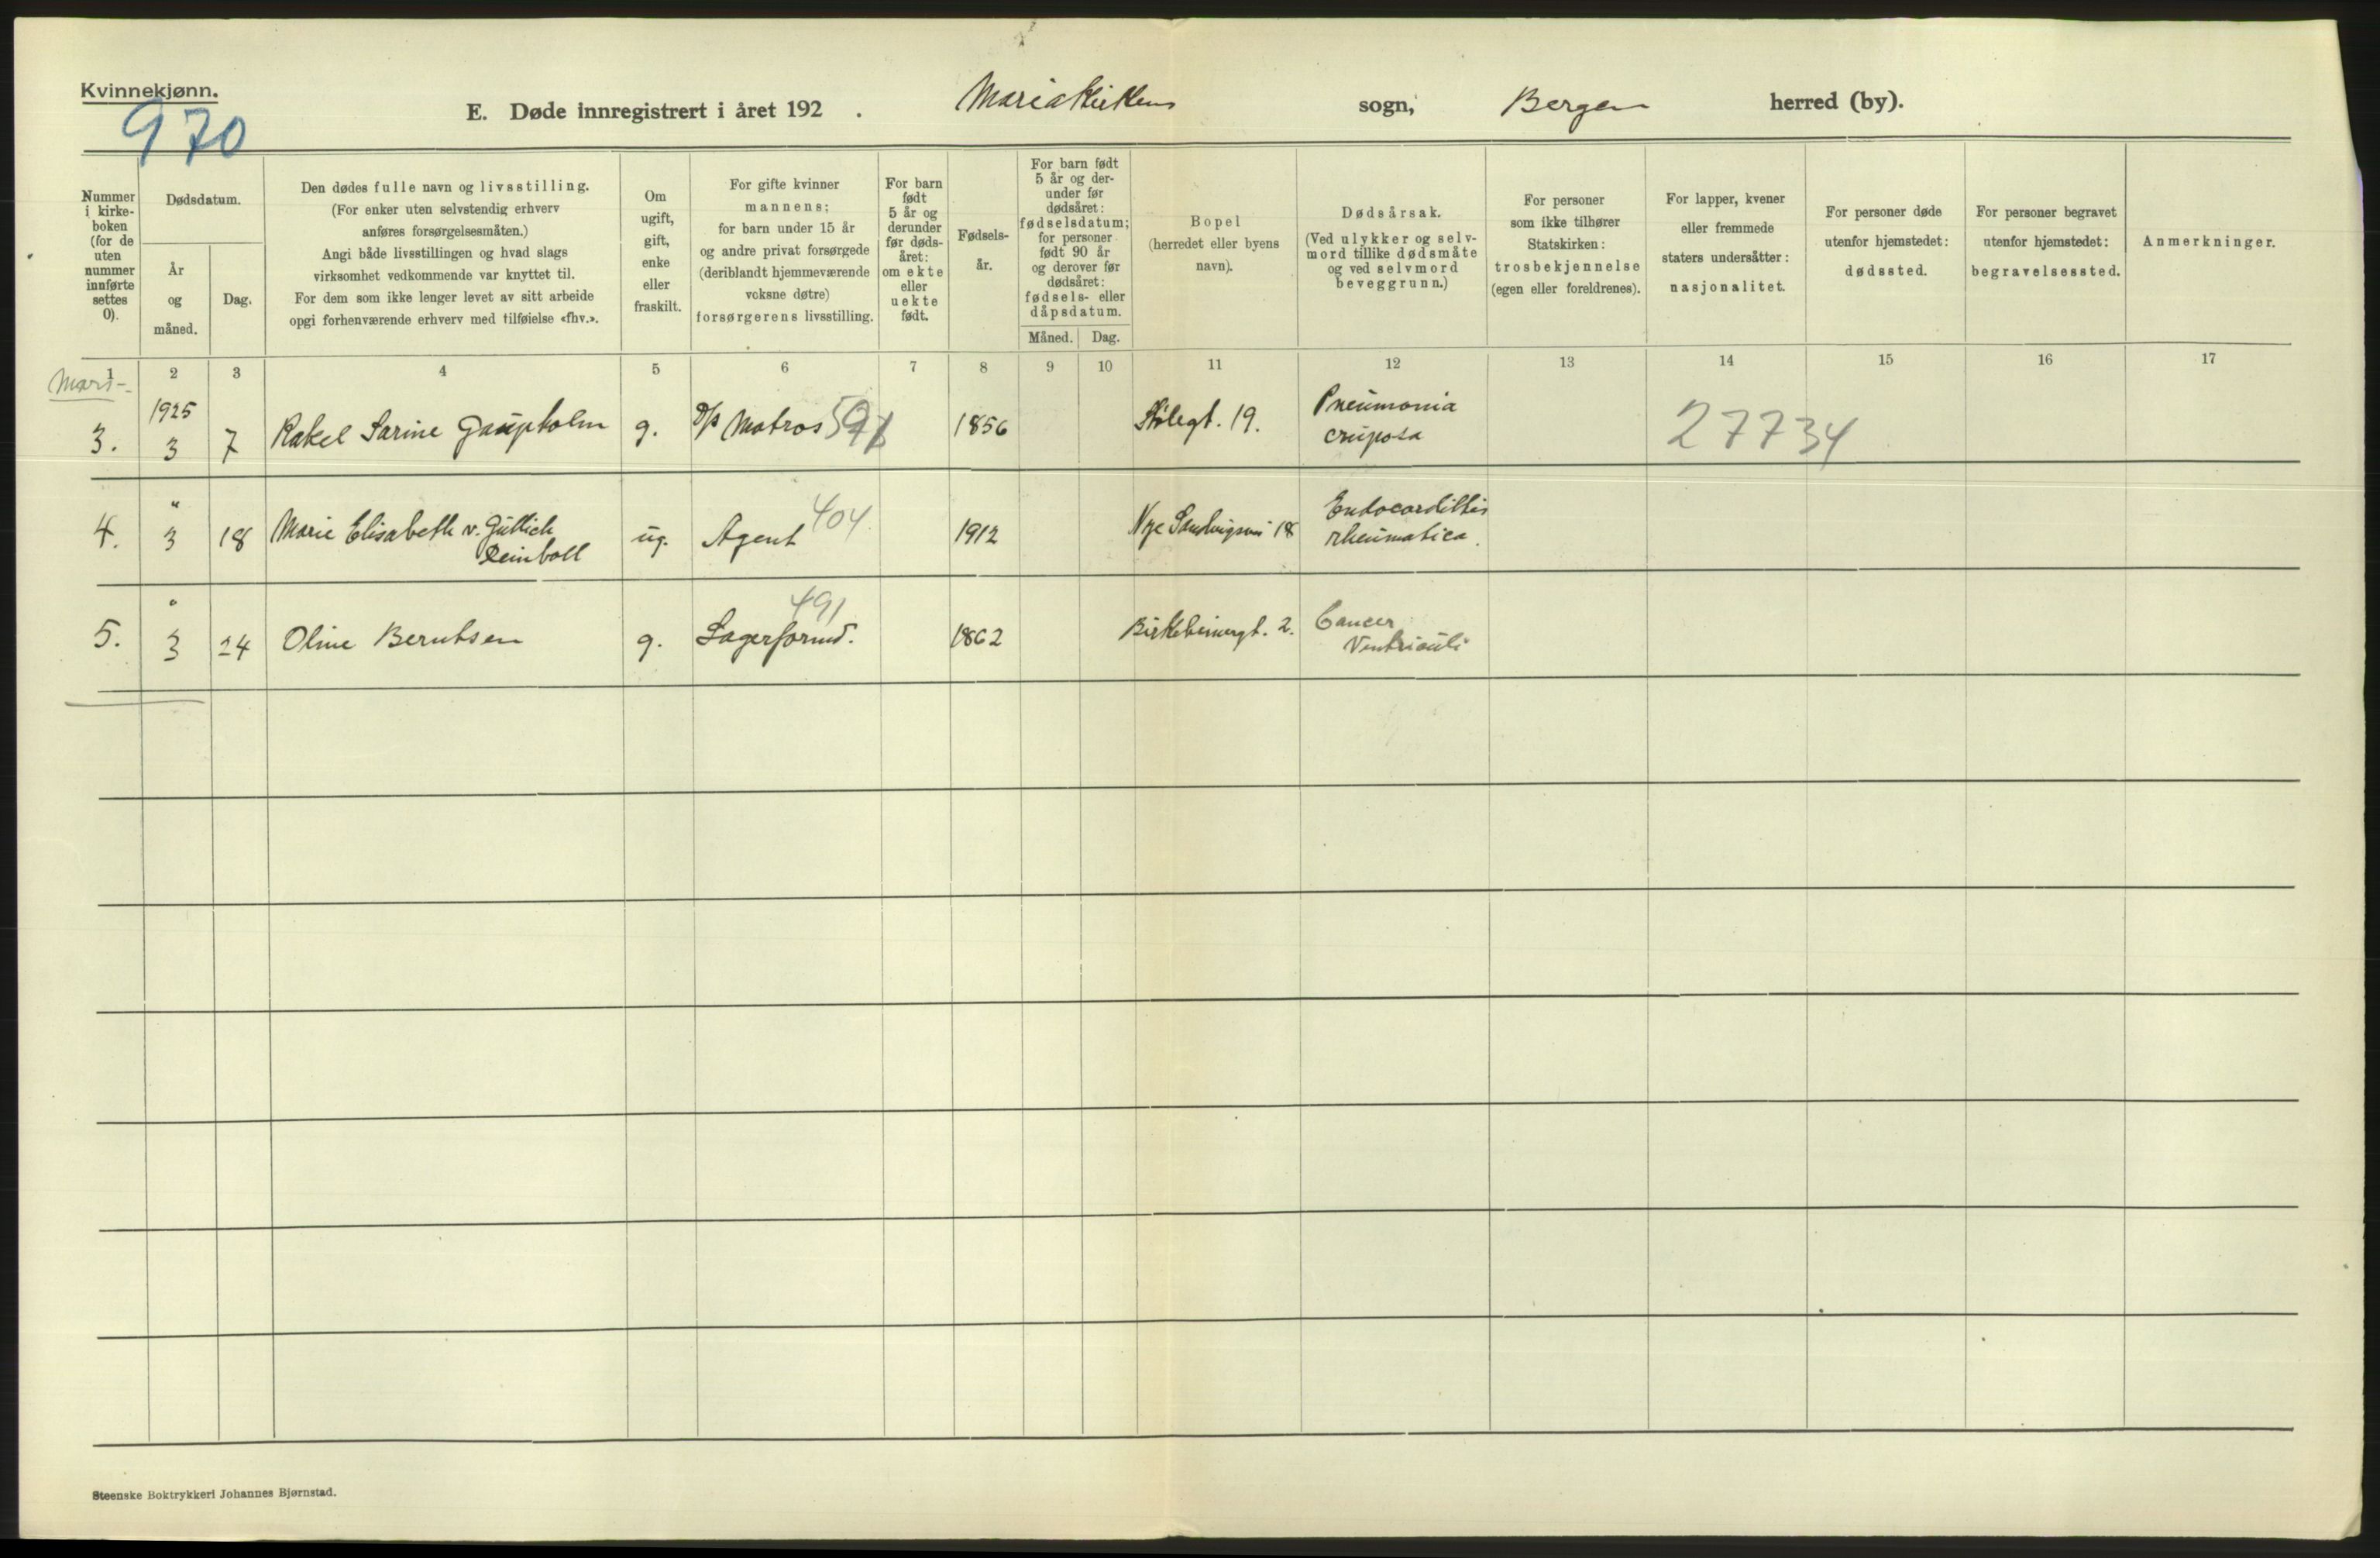 Kvinnekjønn.
970
E. Døde innregistrert i året 192 . Mariakirkens sogn, Bergen herred (by).
Nummer i kirke- boken (for de uten nummer innførte settes 0).
Dødsdatum.
År og måned.
Dag.
Den dødes fulle navn og livsstilling.
(For enker uten selvstendig erhverv
anføres forsørgelsesmåten.)
Angi både livsstillingen og hvad slags
virksomhet vedkommende var knyttet til.
For dem som ikke lenger levet av sitt arbeide
opgi forhenværende erhverv med tilføielse «fhv.».
Om ugift, gift, enke eller fraskilt.
For gifte kvinner
mannens;
for barn under 15 år
og andre privat forsørgede
(deriblandt hjemmeværende
voksne døtre)
forsørgerens livsstilling.
For barn født 5 år og derunder før døds- året: om ekte eller uekte født.
Fødsels- år.
For barn født 5 år og der- under før dødsåret: fødselsdatum; for personer født 90 år og derover før dødsåret: fødsels- eller dåpsdatum.
Måned. Dag.
Bopel
(herredet eller byens
navn).
Dødsårsak.
(Ved ulykker og selv-
mord tillike dødsmåte
og ved selvmord
beveggrunn.)
For personer
som ikke tilhører
Statskirken:
trosbekjennelse
(egen eller foreldrenes).
For lapper, kvener
eller fremmede
staters undersåtter:
nasjonalitet.
For personer døde
utenfor hjemstedet:
dødssted.
For personer begravet
utenfor hjemstedet:
begravelsessted.
Anmerkninger.
1 2 3 4 5 6 7 8 9 10 11 12 13 14 15 16 17
Mars-
1925
3. 3 7 Rakel Sarine Gaupholm g. Matros 1856 Stølegt. 19. Pneumonia
cruposa
27734
4. " 3 18 Marie Elisabeth v. Gütlich
Reinboll
ug. Agent 404 1912 Nye Sandvigsvei 18 Endocardittis
rheumatica.
5. " 3 24 Oline Berntsen g. Lagerformd. 491 1862 Birkebeinergt. 2. Cancer
Ventriculi
Steenske Boktrykkeri Johannes Bjørnstad.